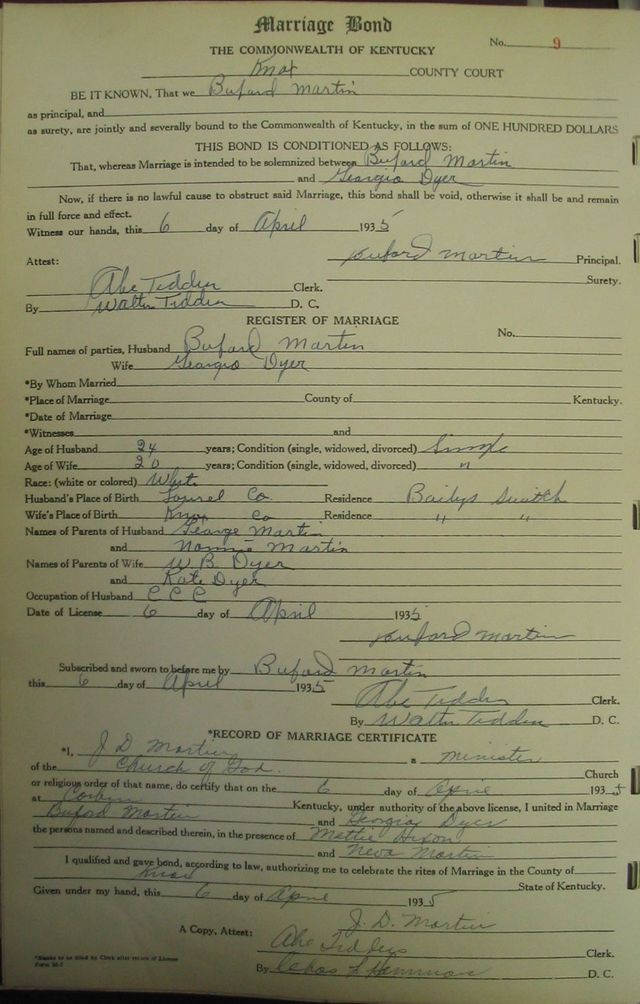 Marriage Bond
No. 9
THE COMMONWEALTH OF KENTUCKY
Knox COUNTY COURT
BE IT KNOWN, That we Buford Martin
as principal, and
as surety, are jointly and severally bound to the Commonwealth of Kentucky, in the sum of ONE HUNDRED DOLLARS
THIS BOND IS CONDITIONED AS FOLLOWS:
That, whereas Marriage is intended to be solemnized between Buford Martin
and Georgia Dyer
Now, if there is no lawful cause to obstruct said Marriage, this bond shall be void, otherwise it shall be and remain
in full force and effect.
Witness our hands, this 6 day of April 1935
Attest: Buford Martin Principal.
Surety.
Abe Tedders Clerk.
By Walter Tedders D. C.
REGISTER OF MARRIAGE
No.
Full names of parties, Husband Buford Martin
Wife Georgia Dyer
*By Whom Married
*Place of Marriage County of Kentucky.
*Date of Marriage
*Witnesses and
Age of Husband 24 years; Condition (single, widowed, divorced) Single
Age of Wife 20 years; Condition (single, widowed, divorced) "
Race: (white or colored) White
Husband's Place of Birth Laurel Co Residence Bailys Switch
Wife's Place of Birth Knox Co Residence " "
Names of Parents of Husband George Martin
and Nannie Martin
Names of Parents of Wife W. B. Dyer
and Kate Dyer
Occupation of Husband C C C
Date of License 6 day of April 1935
Buford Martin
Subscribed and sworn to before me by Buford Martin
this 6 day of April 1935
Abe Tedders Clerk.
By Walter Tedders D. C.
*RECORD OF MARRIAGE CERTIFICATE
*I, J. D. Martin a minister
of the Church of God Church
or religious order of that name, do certify that on the 6 day of April 1935
at Corbin Kentucky, under authority of the above license, I united in Marriage
Buford Martin and Georgia Dyer
the persons named and described therein, in the presence of Mattie Hixon
and Neva Martin
I qualified and gave bond, according to law, authorizing me to celebrate the rites of Marriage in the County of
Knox State of Kentucky.
Given under my hand, this 6 day of April 1935
J. D. Martin
A Copy, Attest: Abe Tedders Clerk.
By D. C.
*Blanks to be filled by Clerk after return of License